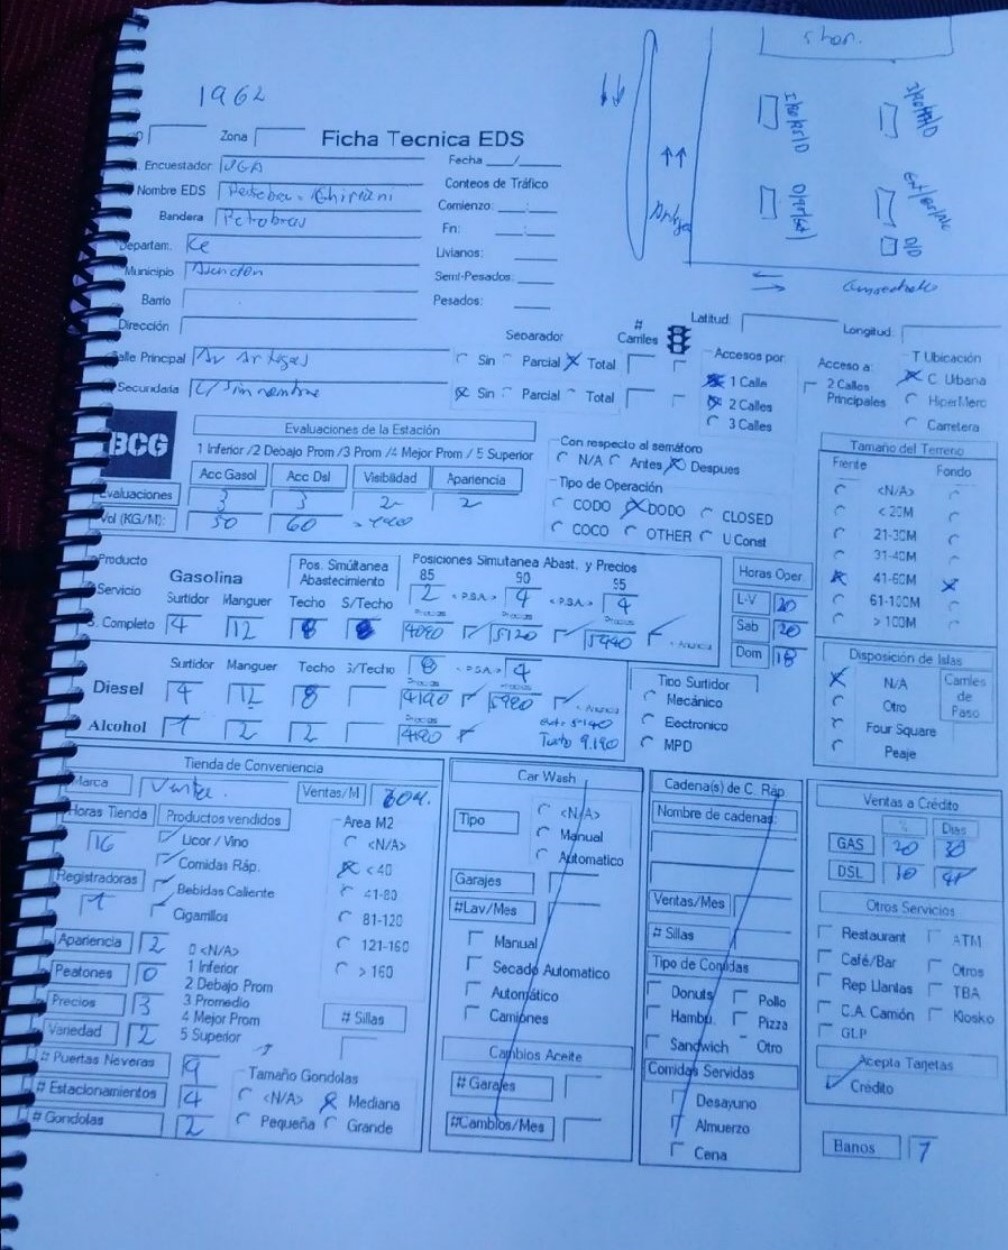 Shop.
1962
Zona
Ficha Tecnica EDS
Encuestador: UGA
Fecha ___/___
Nombre EDS
Conteos de Tráfico
Bandera Petrobras
Comienzo: ___:___
Fn: ___:___
Departam. Ce
Livianos:
Municipio Asuncion
Semi-Pesados:
Barrio
Pesados:
Dirección
Latitud:
Longitud:
Separador
# Carriles
Calle Principal Av Artigas
Sin Parcial Total
Secundaria C/ Sin nombre
Sin Parcial Total
Accesos por:
1 Calle
2 Calles
3 Calles
Acceso a:
2 Calles Principales
T Ubicación
C. Urbana
HiperMerc
Carretera
BCG
Evaluaciones de la Estación
1 Inferior /2 Debajo Prom /3 Prom /4 Mejor Prom / 5 Superior
Acc Gasol Acc Dsl Visibilidad Apariencia
Evaluaciones 3 3 2 2
Vol (KG/M): 50 60
Con respecto al semáforo
N/A Antes Despues
Tipo de Operación
CODO DODO CLOSED
COCO OTHER U Const
Tamaño del Terreno
Frente Fondo
<N/A>
< 20M
21-30M
31-40M
41-60M
61-100M
> 100M
Producto
Servicio
S. Completo
Gasolina
Pos. Simúltanea Abastecimiento
Posiciones Simultanea Abast. y Precios
85 90 95
2 <P.S.A.> 4 <P.S.A.> 4
Surtidor Manguer Techo S/Techo
4 12 8
4090 5120 5990
Horas Oper.
L-V 20
Sab 20
Dom 18
Surtidor Manguer Techo S/Techo
8 <P.S.A.> 4
Diesel 4 12 8
4190 5980
Alcohol 1 2 2
4190
5140
9.190
Tipo Surtidor
Mecánico
Electronico
MPD
Disposición de Islas
N/A
Otro
Four Square
Peaje
Carriles de Paso
Tienda de Conveniencia
Marca
Ventas/M 60M.
Horas Tienda 16
Productos vendidos
Licor / Vino
Comidas Ráp.
Bebidas Caliente
Cigarrillos
Registradoras 1
Area M2
<N/A>
< 40
41-80
81-120
121-160
> 160
Apariencia 2
Peatones 0
Precios 3
Variedad 2
0 <N/A>
1 Inferior
2 Debajo Prom
3 Promedio
4 Mejor Prom
5 Superior
# Sillas
# Puertas Neveras 9
# Estacionamientos 4
# Gondolas 2
Tamaño Gondolas
<N/A> Mediana
Pequeña Grande
Car Wash
Tipo
<N/A>
Manual
Automatico
Garajes
#Lav/Mes
Manual
Secado Automatico
Automático
Camiones
Cambios Aceite
# Garajes
#Cambios/Mes
Cadena(s) de C. Ráp
Nombre de cadenas:
Ventas/Mes
# Sillas
Tipo de Comidas
Donuts Pollo
Hambu. Pizza
Sandwich Otro
Comidas Servidas
Desayuno
Almuerzo
Cena
Ventas a Crédito
% Dias
GAS 20 30
DSL 10
Otros Servicios
Restaurant ATM
Café/Bar Otros
Rep Llantas TBA
C.A. Camón Kiosko
GLP
Acepta Tarjetas
Crédito
Banos 7